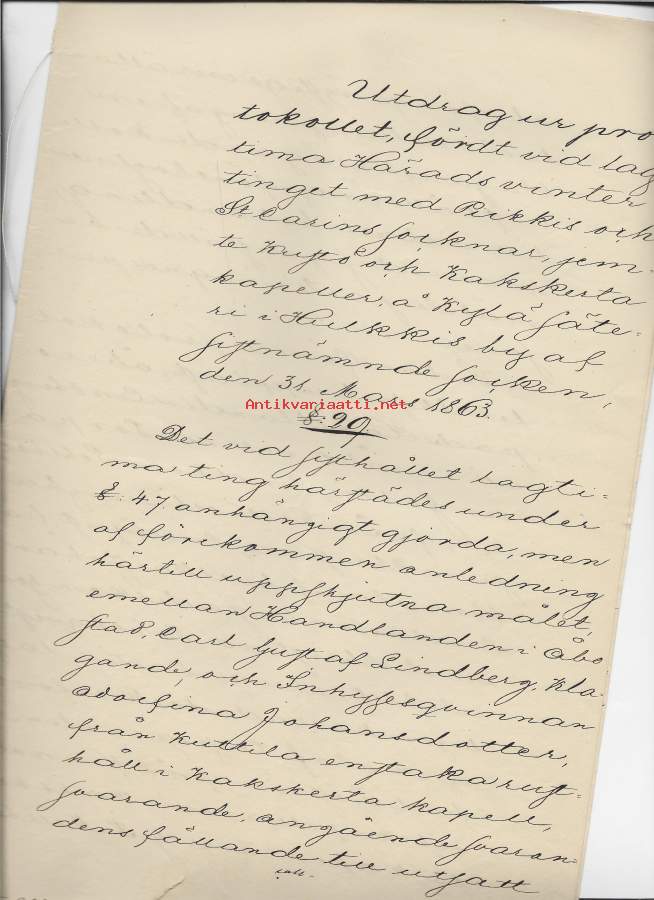 Utdrag ur pro
tokollet, fördt vid lag
tima Härads vinter
tinget med Pikkis och
St Carins socknar, jem-
te Kustö och Kakskerta
kapeller, å Kylä säte-
ri i Hulkkis by af
sistnämnde socken,
den 31 Mars 1863.
Antikvariaatti.net
§. 29.
Det vid sisthållet lagti-
ma ting härstädes under
§. 47 anhängigt gjorda, men
af förekommen anledning
härtill uppskjutna målet,
emellan Handlanden i Åbo
stad, Carl Gustaf Lindberg, kla-
gande, och Inhysesqvinnan
Adolfina Johansdotter,
från Kuttila enstaka rust-
håll i Kakskerta kapell,
svarande, angående svaran-
dens fällande till utsatt